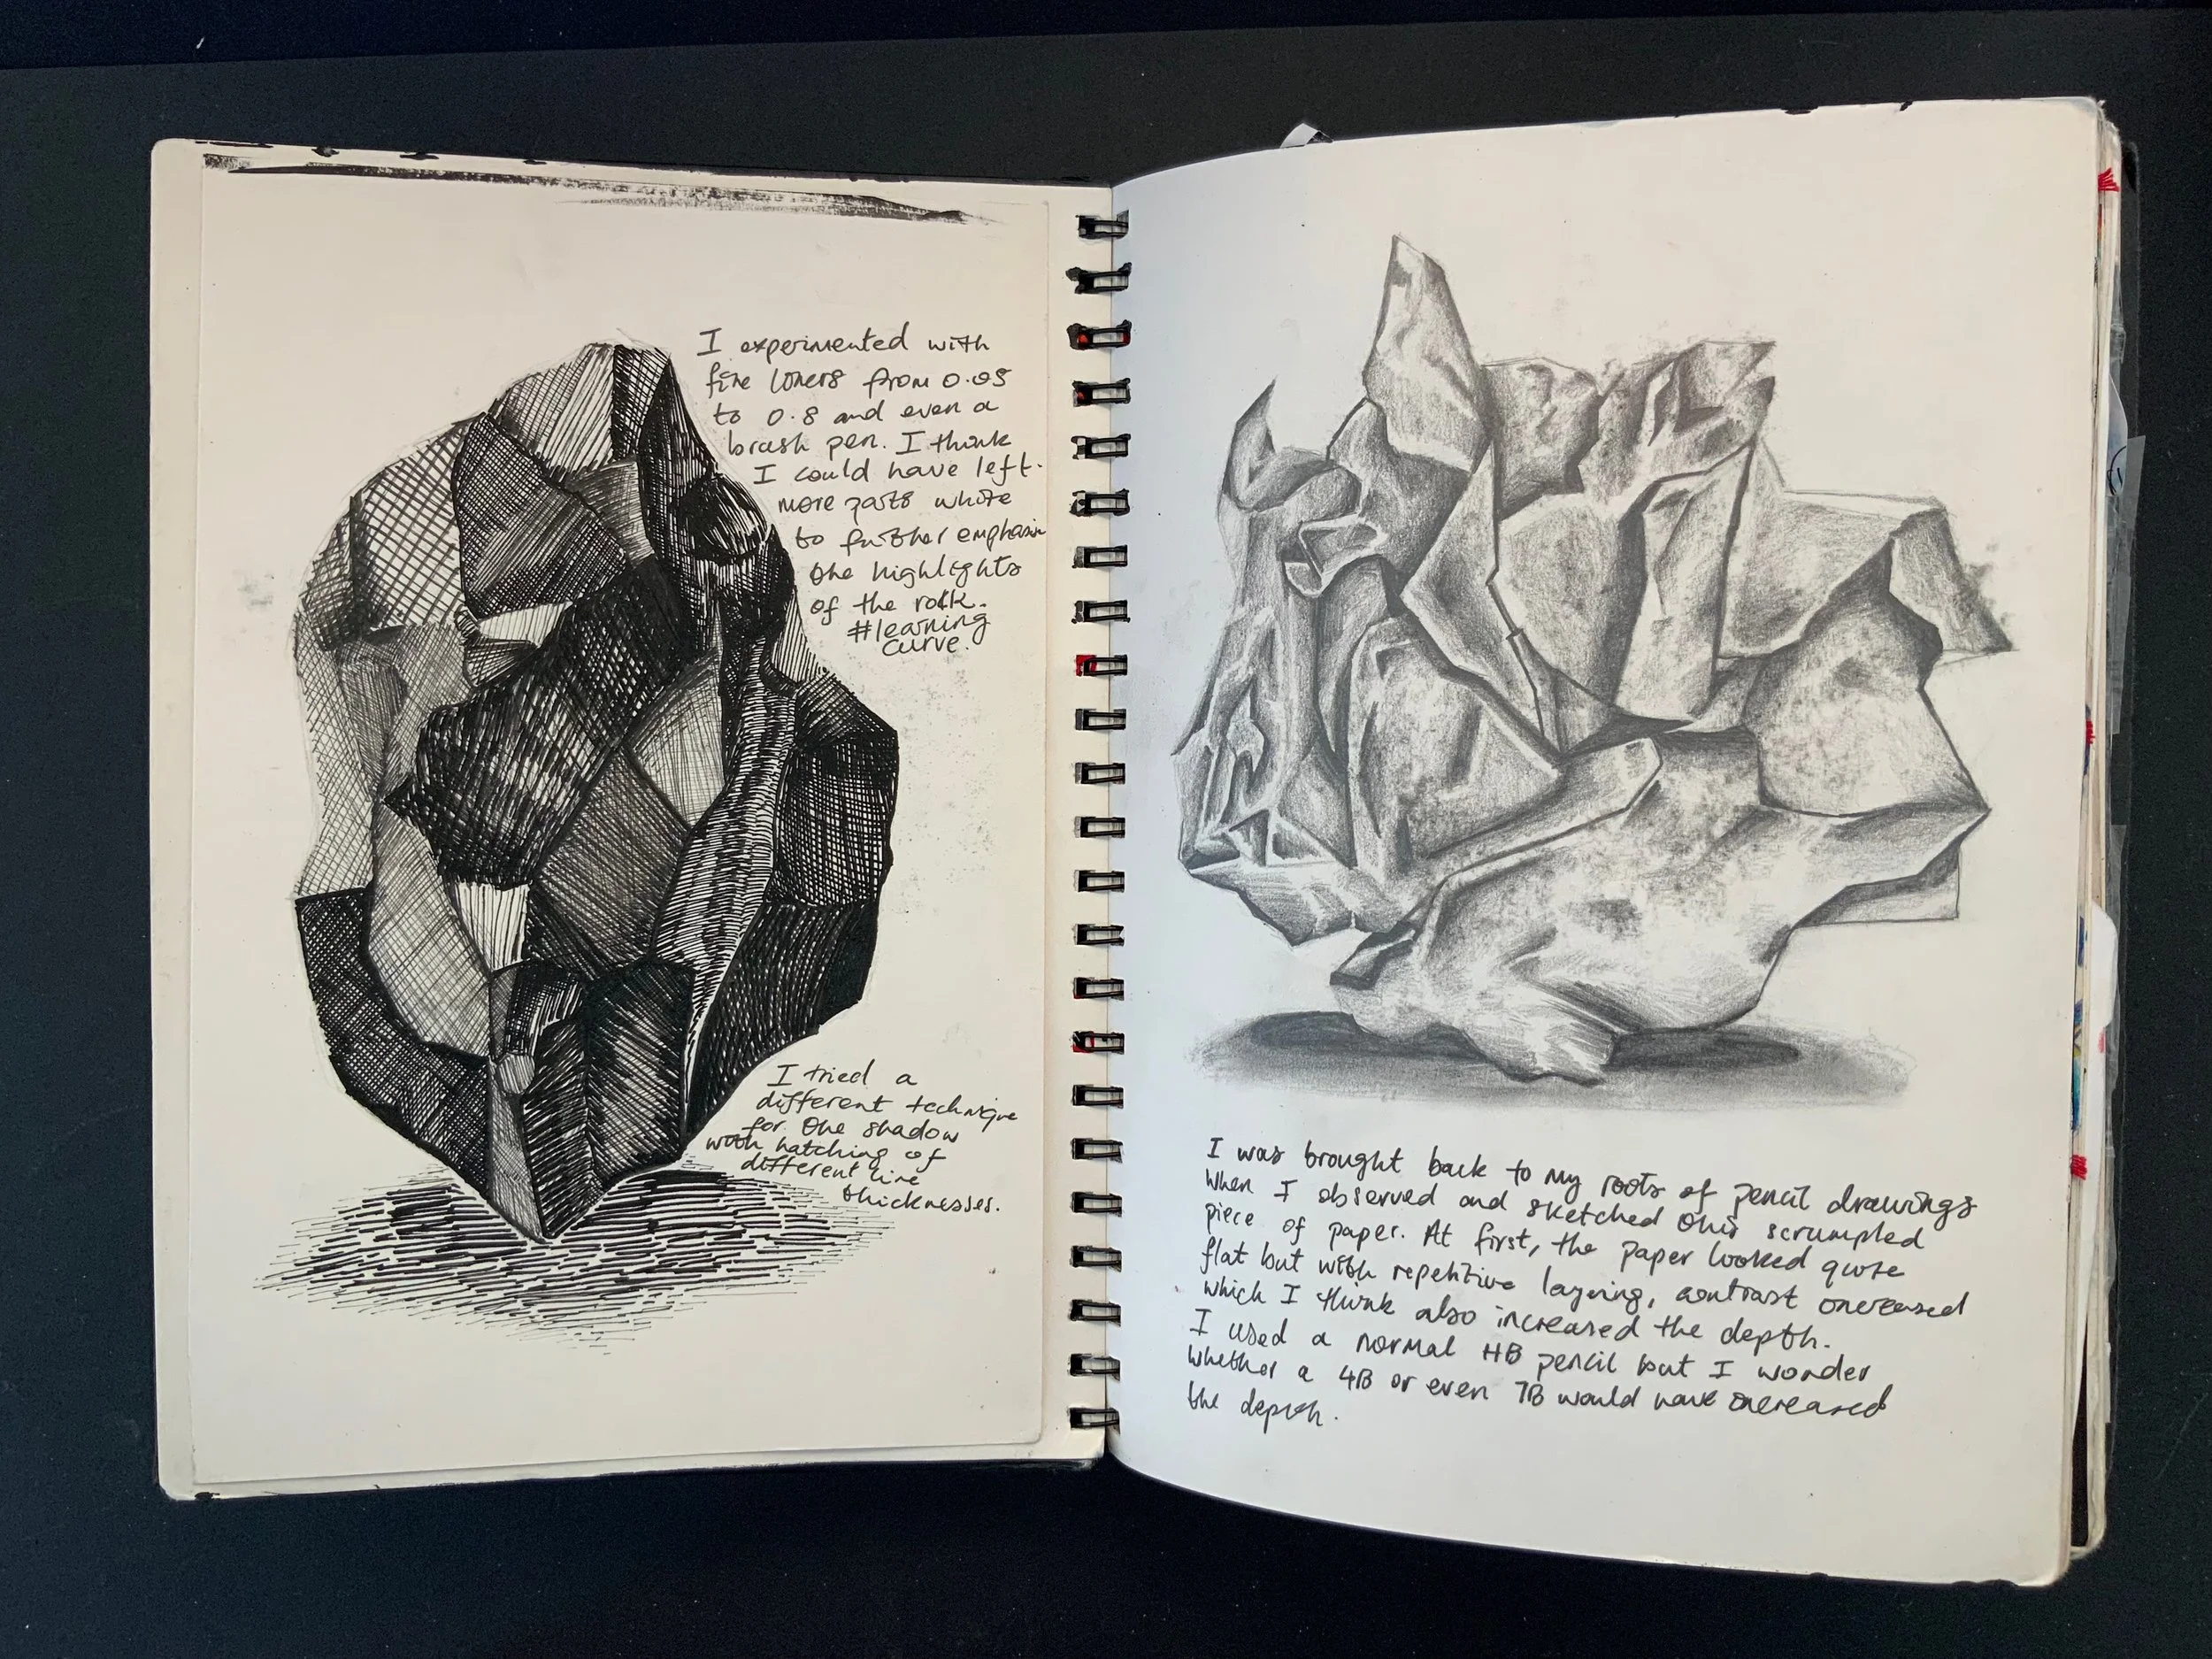 I experimented with
fine liners from 0.05
to 0.8 and even a
brush pen. I think
I could have left
more parts white
to further emphasise
the highlights
of the rock.
#learning
curve.
I tried a
different technique
for the shadow
with hatching of
different line
thicknesses.
I was brought back to my roots of pencil drawings
when I observed and sketched this scrumpled
piece of paper. At first, the paper looked quite
flat but with repetitive layering, contrast increased
which I think also increased the depth.
I used a normal HB pencil but I wonder
whether a 4B or even 7B would have increased
the depth.